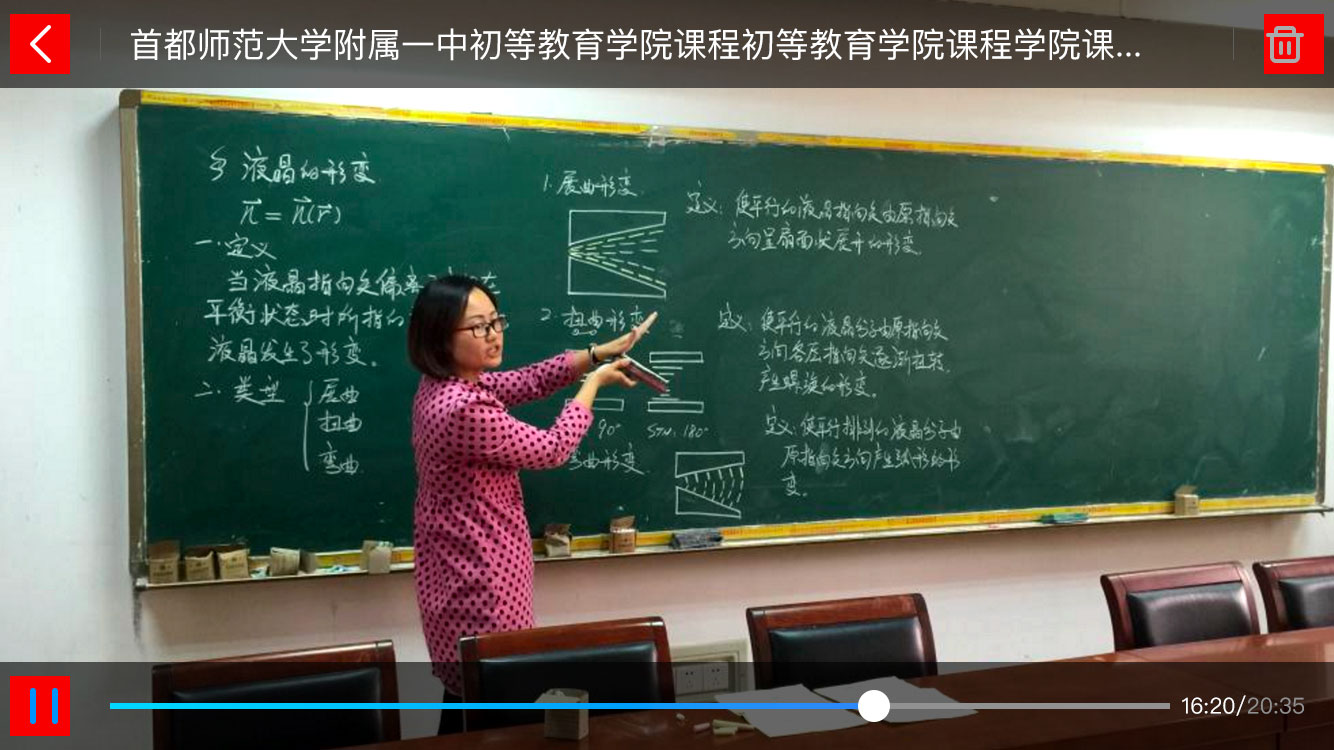 首都师范大学附属一中初等教育学院课程初等教育学院课程学院课...
液晶的形变
n⃗ = n⃗(r⃗)
一.定义
当液晶指向矢偏离
平衡状态时所指的
液晶发生了形变。
二.类型
展曲
扭曲
弯曲
1.展曲形变
定义：使平行的液晶指向矢由原指向矢
方向呈扇面状展开的形变。
2.扭曲形变
90° STN: 180°
定义：使平行的液晶分子由原指向矢
方向各层指向矢逐渐扭转
产生螺旋的形变。
弯曲形变
定义：使平行排列的液晶分子由
原指向矢方向产生弧形的形
变。
16:20/20:35